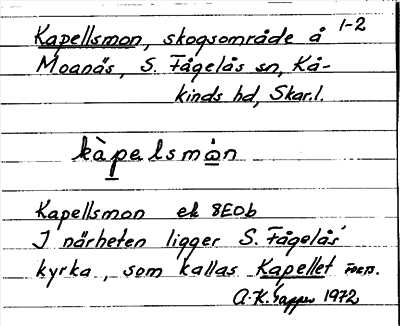 Kapellsmon, skogsområde å 1-2
Moanäs, S. Fågelås sn, Kå-
kinds hd, Skar.l.
kàpelsmån
Kapellsmon ek 8E0b
I närheten ligger S. Fågelås'
kyrka, som kallas Kapellet
A.K. 1972